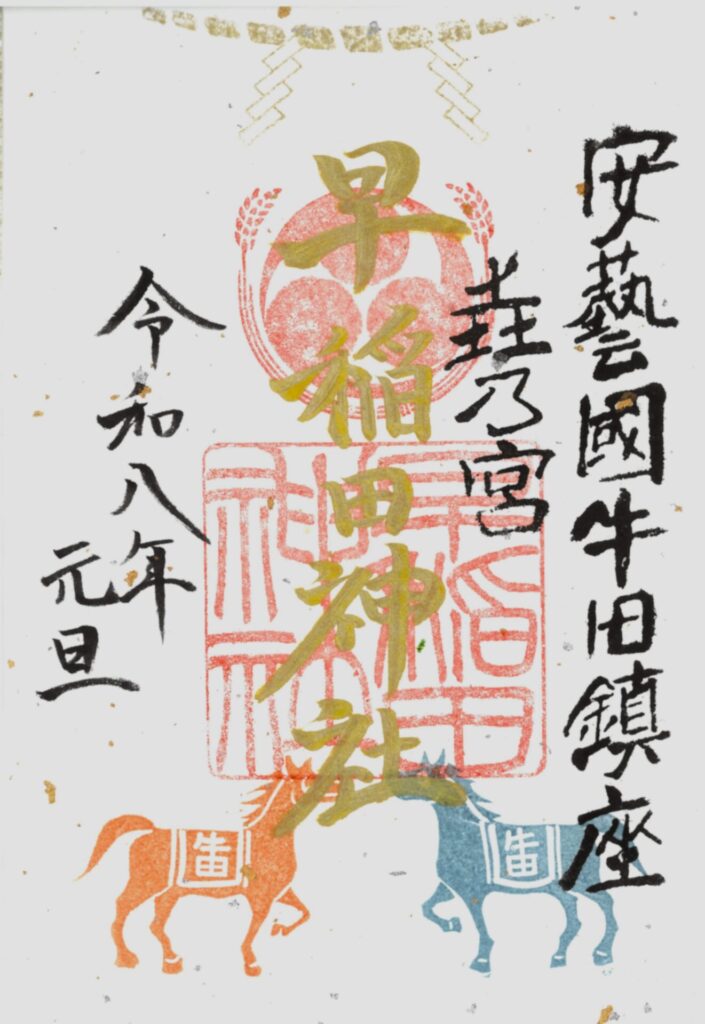 安藝國牛田鎮座
乃宮
早稲田神社
早稲田
神社
令和八年
元旦
牛田
牛田